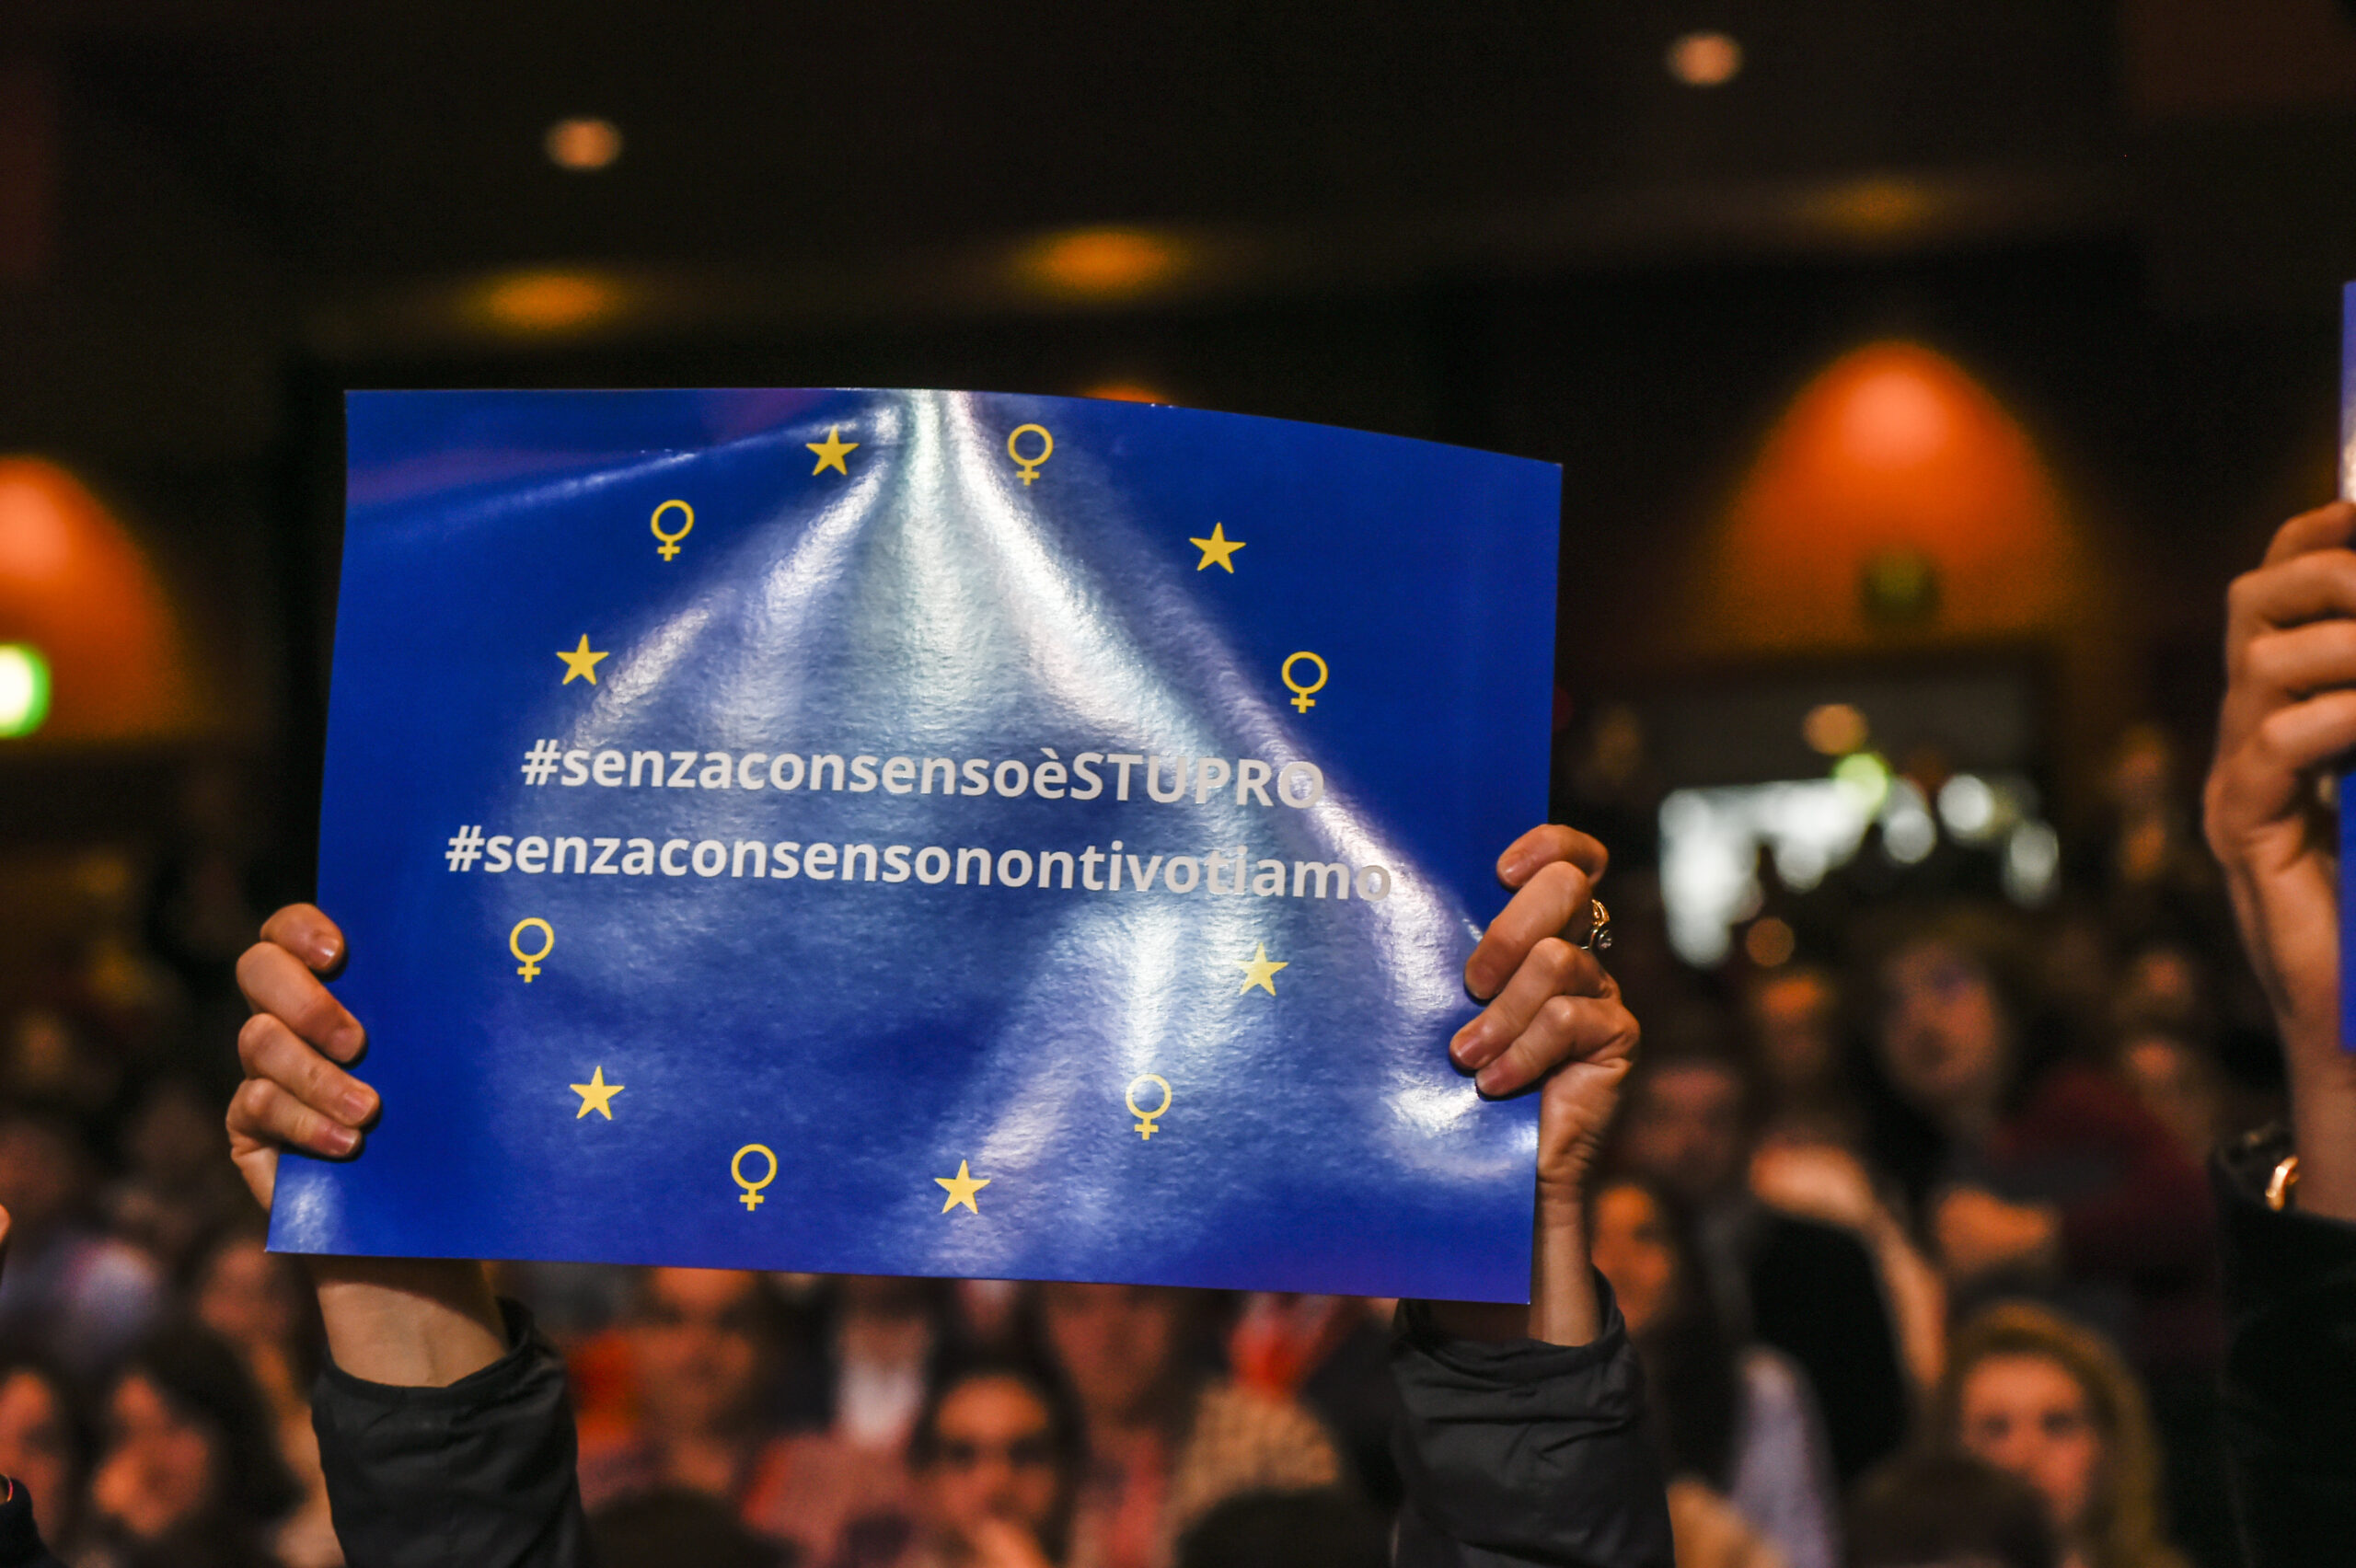 #senzaconsensoèSTUPRO
#senzaconsensonontivotiamo